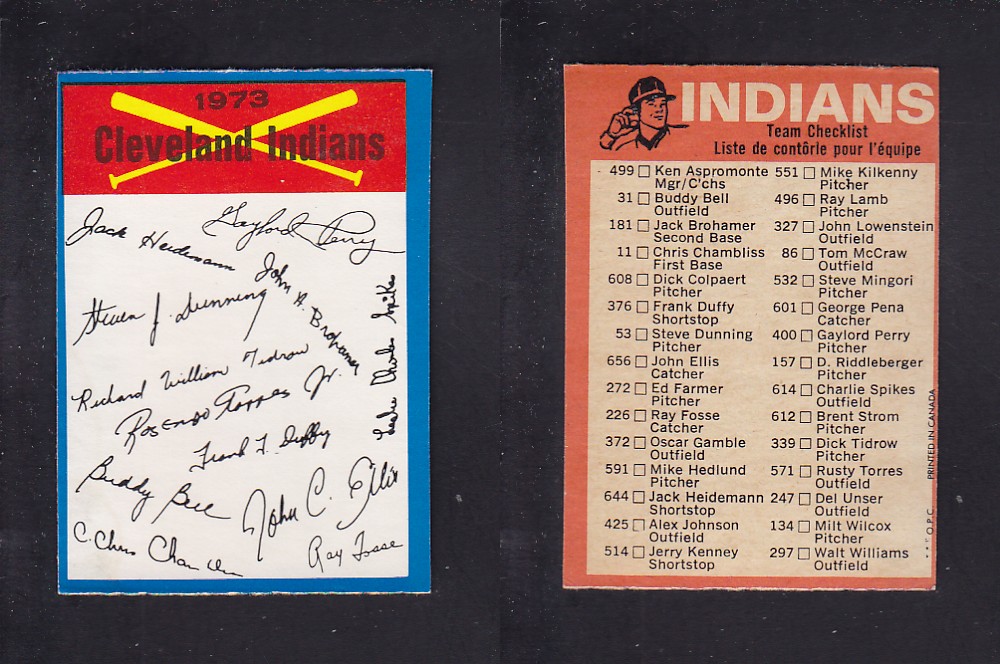 1973
Cleveland Indians
Jack Heidemann
Gaylord Perry
John A. Brohamer
Steven J. Dunning
Leslie Charles Spikes
Richard William Tidrow
Rosendo Torres Jr.
Frank T. Duffy
Buddy Bell
John C. Ellis
C. Chris Chambliss
Ray Fosse
INDIANS
Team Checklist
Liste de contôrle pour l'équipe
499 Ken Aspromonte
Mgr/C'chs
31 Buddy Bell
Outfield
181 Jack Brohamer
Second Base
11 Chris Chambliss
First Base
608 Dick Colpaert
Pitcher
376 Frank Duffy
Shortstop
53 Steve Dunning
Pitcher
656 John Ellis
Catcher
272 Ed Farmer
Pitcher
226 Ray Fosse
Catcher
372 Oscar Gamble
Outfield
591 Mike Hedlund
Pitcher
644 Jack Heidemann
Shortstop
425 Alex Johnson
Outfield
514 Jerry Kenney
Shortstop
551 Mike Kilkenny
Pitcher
496 Ray Lamb
Pitcher
327 John Lowenstein
Outfield
86 Tom McCraw
Outfield
532 Steve Mingori
Pitcher
601 George Pena
Catcher
400 Gaylord Perry
Pitcher
157 D. Riddleberger
Pitcher
614 Charlie Spikes
Outfield
612 Brent Strom
Pitcher
339 Dick Tidrow
Pitcher
571 Rusty Torres
Outfield
247 Del Unser
Outfield
134 Milt Wilcox
Pitcher
297 Walt Williams
Outfield
** O.P.C. PRINTED IN CANADA